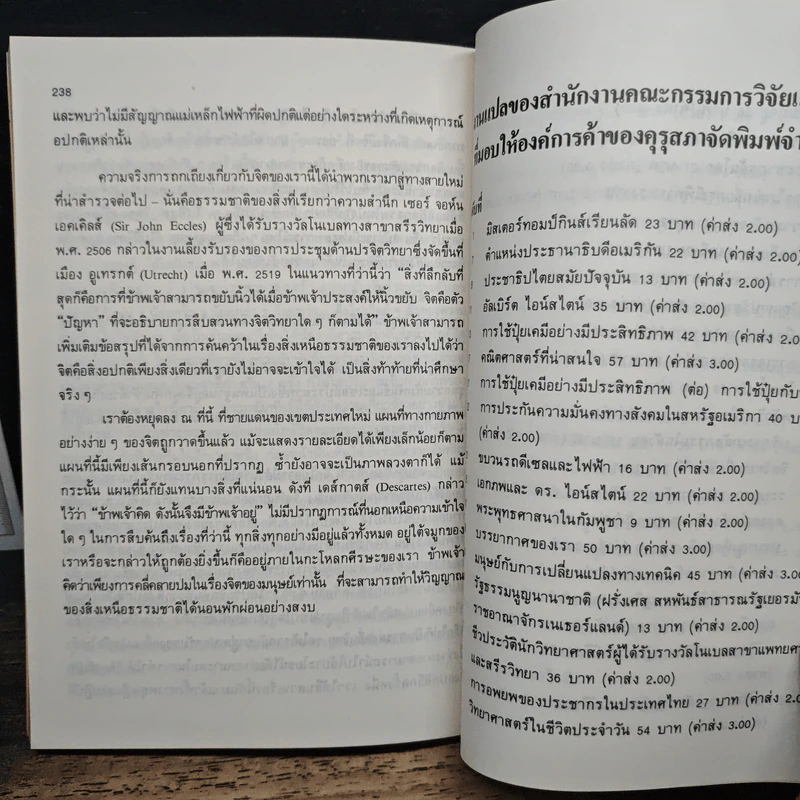 238
และพบว่าไม่มีสัญญาณแม่เหล็กไฟฟ้าที่ผิดปกติแต่อย่างใดระหว่างที่เกิดเหตุการณ์
อปกติเหล่านั้น
ความจริงการถกเถียงเกี่ยวกับจิตของเรานี้ได้นำพวกเรามาสู่ทางสายใหม่
ที่น่าสำรวจต่อไป – นั่นคือธรรมชาติของสิ่งที่เรียกว่าความสำนึก เซอร์ จอห์น
เอคเคิลส์ (Sir John Eccles) ผู้ซึ่งได้รับรางวัลโนเบลทางสาขาสรีรวิทยาเมื่อ
พ.ศ. 2506 กล่าวในงานเลี้ยงรับรองของการประชุมด้านปรจิตวิทยาซึ่งจัดขึ้นที่
เมือง อูเทรกต์ (Utrecht) เมื่อ พ.ศ. 2519 ในแนวทางที่ว่านี้ว่า “สิ่งที่ลึกลับที่
สุดก็คือการที่ข้าพเจ้าสามารถขยับนิ้วได้เมื่อข้าพเจ้าประสงค์ให้นิ้วขยับ จิตคือตัว
“ปัญหา” ที่จะอธิบายการสืบสวนทางจิตวิทยาใด ๆ ก็ตามได้” ข้าพเจ้าสามารถ
เพิ่มเติมข้อสรุปที่ได้จากการค้นคว้าในเรื่องสิ่งเหนือธรรมชาติของเราลงไปได้ว่า
จิตคือสิ่งอปกติเพียงสิ่งเดียวที่เรายังไม่อาจจะเข้าใจได้ เป็นสิ่งท้าทายที่น่าศึกษา
จริง ๆ
เราต้องหยุดลง ณ ที่นี้ ที่ชายแดนของเขตประเทศใหม่ แผนที่ทางกายภาพ
อย่างง่าย ๆ ของจิตถูกวาดขึ้นแล้ว แม้จะแสดงรายละเอียดได้เพียงเล็กน้อยก็ตาม
แผนที่นี้มีเพียงเส้นกรอบนอกที่ปรากฏ ซ้ำยังอาจจะเป็นภาพลวงตาก็ได้ แม้
กระนั้น แผนที่นี้ก็ยังแทนบางสิ่งที่แน่นอน ดังที่ เดส์กาตส์ (Descartes) กล่าว
ไว้ว่า “ข้าพเจ้าคิด ดังนั้นจึงมีข้าพเจ้าอยู่” ไม่มีปรากฏการณ์ที่นอกเหนือความเข้าใจ
ใด ๆ ในการสืบค้นถึงเรื่องที่ว่านี้ ทุกสิ่งทุกอย่างมีอยู่แล้วทั้งหมด อยู่ใต้จมูกของ
เราหรือจะกล่าวให้ถูกต้องยิ่งขึ้นก็คืออยู่ภายในกะโหลกศีรษะของเรา ข้าพเจ้า
คิดว่าเพียงการคลี่คลายปมในเรื่องจิตของมนุษย์เท่านั้น ที่จะสามารถทำให้วิญญาณ
ของสิ่งเหนือธรรมชาติได้นอนพักผ่อนอย่างสงบ
งานแปลของสำนักงานคณะกรรมการวิจัย
ที่มอบให้องค์การค้าของคุรุสภาจัดพิมพ์จำ
มิสเตอร์ทอมป์กินส์เรียนลัด 23 บาท (ค่าส่ง 2.00)
ตำแหน่งประธานาธิบดีอเมริกัน 22 บาท (ค่าส่ง 2.00)
ประชาธิปไตยสมัยปัจจุบัน 13 บาท (ค่าส่ง 2.00)
อัลเบิร์ต ไอน์สไตน์ 35 บาท (ค่าส่ง 2.00)
การใช้ปุ๋ยเคมีอย่างมีประสิทธิภาพ 42 บาท (ค่าส่ง 2.0
คณิตศาสตร์ที่น่าสนใจ 57 บาท (ค่าส่ง 3.00)
การใช้ปุ๋ยเคมีอย่างมีประสิทธิภาพ (ต่อ) การใช้ปุ๋ยกับ
การประกันความมั่นคงทางสังคมในสหรัฐอเมริกา 40 บ
(ค่าส่ง 2.00)
ขบวนรถดีเซลและไฟฟ้า 16 บาท (ค่าส่ง 2.00)
เอกภพและ ดร. ไอน์สไตน์ 22 บาท (ค่าส่ง 2.00)
พระพุทธศาสนาในกัมพูชา 9 บาท (ค่าส่ง 2.00)
บรรยากาศของเรา 50 บาท (ค่าส่ง 3.00)
มนุษย์กับการเปลี่ยนแปลงทางเทคนิค 45 บาท (ค่าส่ง 3.00
รัฐธรรมนูญนานาชาติ (ฝรั่งเศส สหพันธ์สาธารณรัฐเยอรมั
ราชอาณาจักรเนเธอร์แลนด์) 13 บาท (ค่าส่ง 2.00)
ชีวประวัตินักวิทยาศาสตร์ผู้ได้รับรางวัลโนเบลสาขาแพทยศา
และสรีรวิทยา 36 บาท (ค่าส่ง 2.00)
การอพยพของประชากรในประเทศไทย 27 บาท (ค่าส่ง 2.0
วิทยาศาสตร์ในชีวิตประจำวัน 54 บาท (ค่าส่ง 3.00)